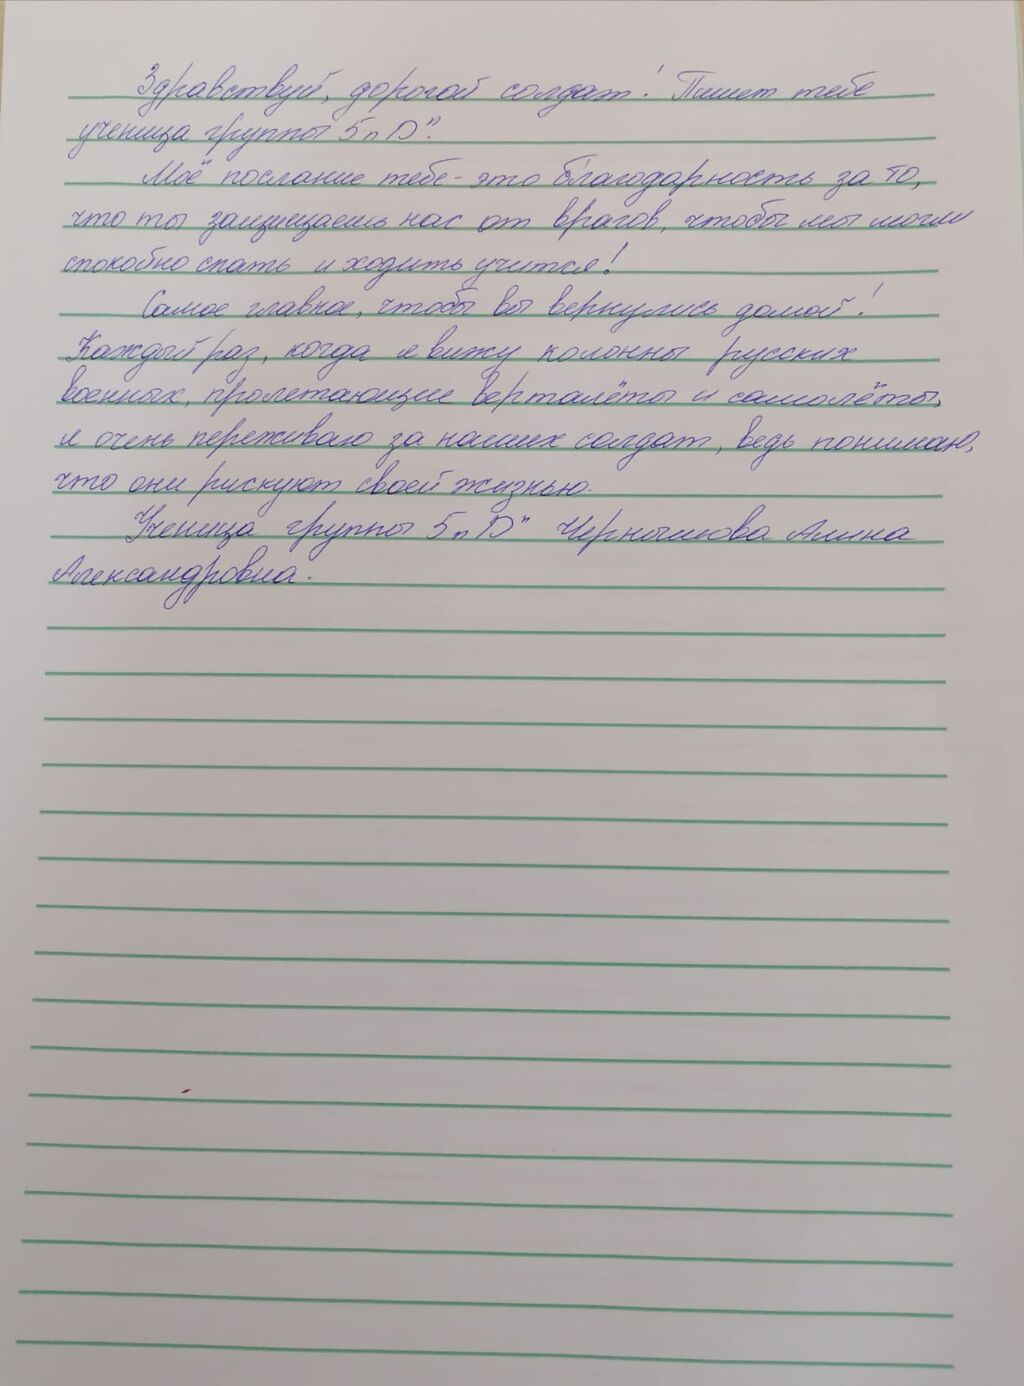 Здравствуй, дорогой солдат! Пишет тебе
ученица группы 5 „D".
Моё послание тебе - это благодарность за то,
что ты защищаешь нас от врагов, чтобы мы могли
спокойно спать и ходить учится!
Самое главное, чтобы вы вернулись домой!
Каждый раз, когда я вижу колонны русских
военных, пролетающие верталёты и самолёты,
я очень переживаю за наших солдат, ведь понимаю,
что они рискуют своей жизнью.
Ученица группы 5 „D" Чернышова Алина
Александровна.